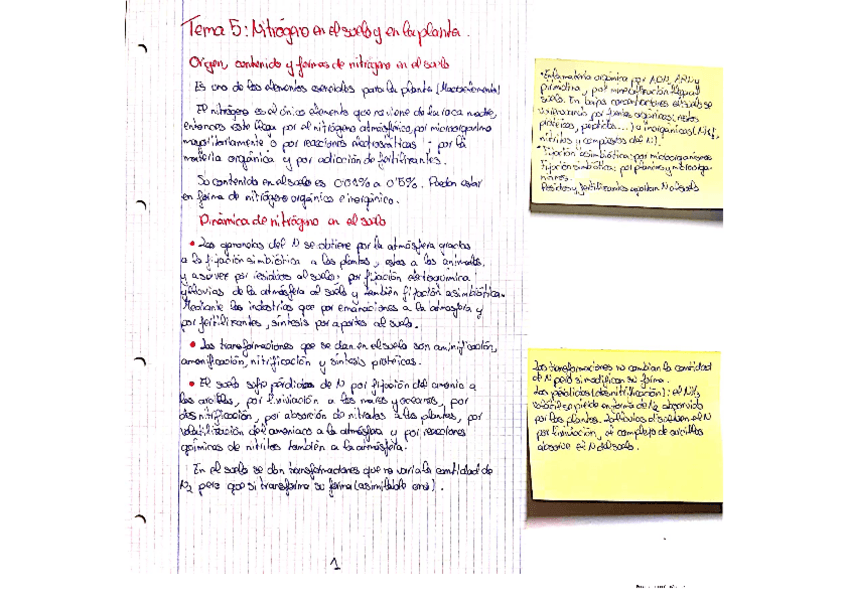 Tema 5: Nitrógeno en el suelo y en la planta.
Origen, contenido y formas de nitrógeno en el suelo
Es uno de los elementos esenciales para la planta (Macroelemento)
El nitrógeno es el único elemento que no viene de la roca madre,
entonces este llega por el nitrógeno atmosférico, por microorganismo
mayoritariamente o por reacciones · por la
materia orgánica y por adicación de fertilizantes.
Su contenido en el suelo es 0'01% a 0'5%. Pueden estar
en forma de nitrógeno orgánico e inorgánico.
Dinámica de nitrógeno en el suelo
• Las ganancias del N se obtiene por la atmósfera gracias
a la fijación simbiótica a las plantas, estas a los animales
y a su vez por residuos al suelo; por fijación electroquímica
y lluvias de la atmósfera al suelo y también fijación asimbiótica.
Mediante las industrias que por emanaciones a la atmósfera y
por fertilizantes, síntesis por aportes al suelo.
• Las transformaciones que se dan en el suelo son aminificación,
amonificación, nitrificación y síntesis proteicas.
• El suelo sufre pérdidas de N por fijación del amonio a
las arcillas, por lixiviación a los mares y oceanos, por
desnitrificación, por absorción de nitratos a las plantas, por
volatilización del amoniaco a la atmósfera y por reacciones
químicas de nitritos también a la atmósfera.
En el suelo se dan transformaciones que no varía la cantidad de
N2 pero que si transforma su forma (asimilable o no).
1
• En materia orgánica por ADN, ARN y
, y por mineralización llega al
suelo. En baja concentraciones el suelo se
por formas orgánicas (restos
proteicos, peptidos...) o inorgánicas (NH4+,
nitritos y compuestos del N).
• Fijación asimbiótica: por microorganismos
Fijación simbiótica: por plantas y microorga-
nismos.
Residuos y fertilizantes aportan N al suelo
Las transformaciones no cambian la cantidad
de N pero si modifican su forma.
Las pérdidas (desnitrificación): el NH3
volátil en forma de absorvido
por las plantas. el N
por lixiviación, el complejo de arcillas
absorve el N del suelo.